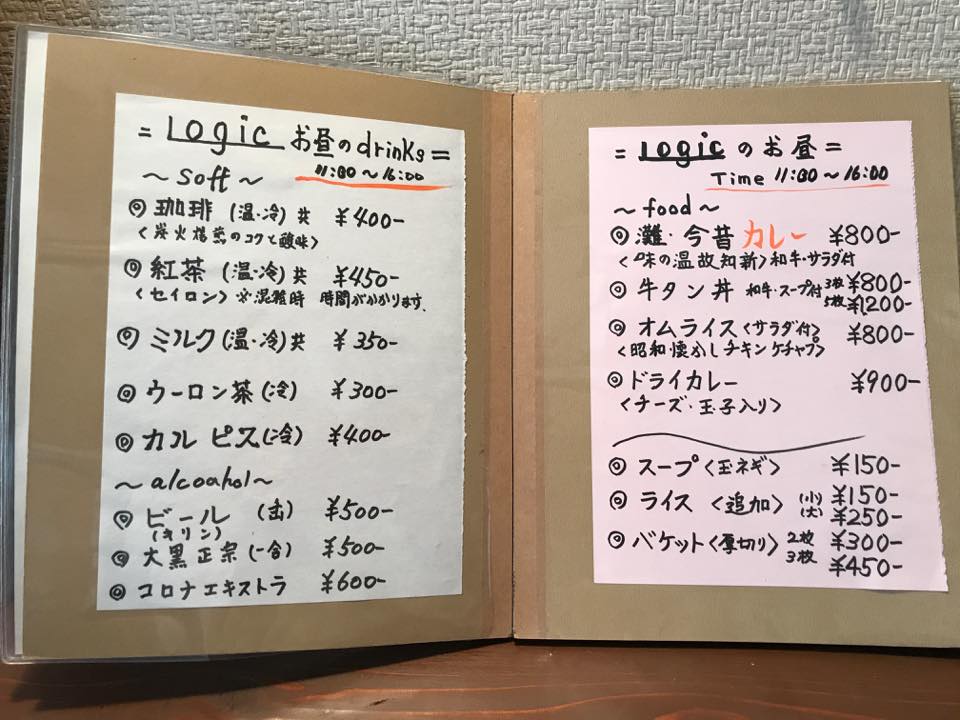 = Logic お昼のdrinks =
11:00〜16:00
〜 soft 〜
◎ 珈琲 (温・冷) 共 ¥400-
<炭火焙煎のコクと酸味>
◎ 紅茶 (温・冷) 共 ¥450-
<セイロン> ※混雑時 時間がかかります。
◎ ミルク (温・冷) 共 ¥350-
◎ ウーロン茶 (冷) ¥300-
◎ カルピス (冷) ¥400-
〜 alcoahol 〜
◎ ビール (缶) ¥500-
(キリン)
◎ 大黒正宗 (一合) ¥500-
◎ コロナエキストラ ¥600-
= Logic のお昼 =
Time 11:00〜16:00
〜 food 〜
◎ 灘・今昔カレー ¥800-
<味の温故知新> 和牛・サラダ付
◎ 牛タン丼 和牛・スープ付 3枚 ¥800-
5枚 ¥1200-
◎ オムライス <サラダ付> ¥800-
<昭和・懐かしチキンケチャプ>
◎ ドライカレー ¥900-
<チーズ・玉子入り>
◎ スープ <玉ネギ> ¥150-
◎ ライス <追加> (小) ¥150-
(大) ¥250-
◎ バケット <厚切り> 2枚 ¥300-
3枚 ¥450-